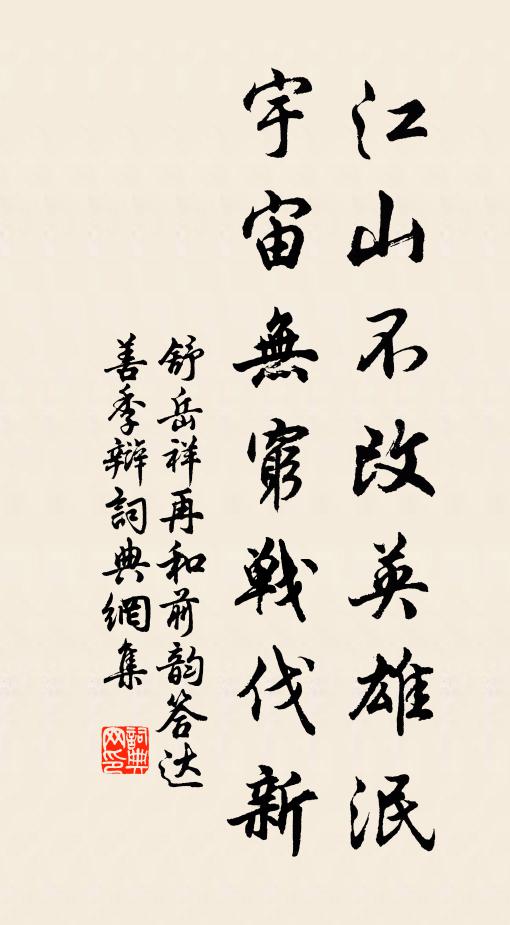 江山不改英雄泯
宇宙無窮戰伐新
舒岳祥再和前韵答达
善季辩詞典網集
詞典
网印